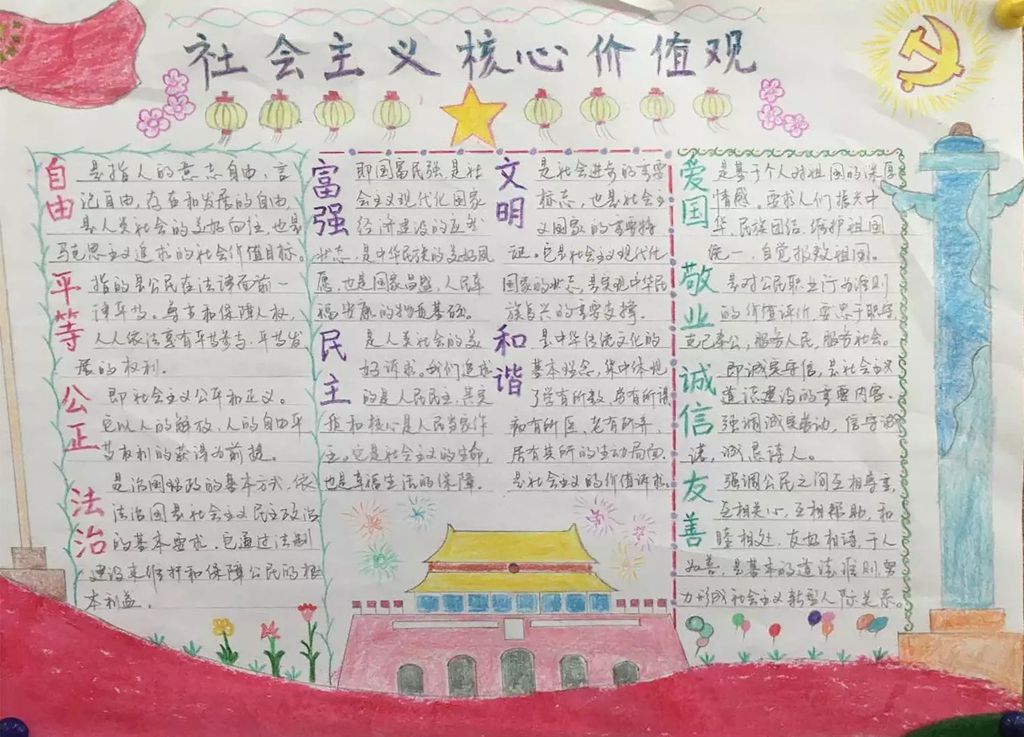 社会主义核心价值观
自由
是指人的意志自由、言
论自由、存在和发展的自由,
是人类社会的美好向往,也是
马克思主义追求的社会价值目标。
平等
指的是公民在法律面前一
律平等。尊重和保障人权,
人人依法享有平等参与、平等发
展的权利。
公正
即社会主义公平和正义。
它以人的解放、人的自由平
等权利的获得为前提。
法治
是治国理政的基本方式,依
法治国是社会主义民主政治
的基本要求,它通过法制
建设来维护和保障公民的根
本利益。
富强
即国富民强,是社
会主义现代化国家
经济建设的应然
状态,是中华民族的美好夙
愿,也是国家昌盛,人民幸
福安康的物质基础。
民主
是人类社会的美
好诉求。我们追求
的是人民民主,其实
质和核心是人民当家作
主。它是社会主义的生命,
也是幸福生活的保障。
文明
是社会进步的重要
标志,也是社会主
义国家的重要特
征。它是社会主义现代化
国家的状态,是实现中华民
族复兴的重要支撑。
和谐
是中华传统文化的
基本理念,集中体现
了学有所教、劳有所得
病有所医、老有所养、
居有其所的生动局面。
是社会主义的价值诉求。
爱国
是基于个人对祖国的深厚
情感。要求人们振兴中
华、民族团结、维护祖国
统一、自觉报效祖国。
敬业
是对公民职业行为准则
的价值评价,要忠于职守
克己奉公,服务人民,服务社会。
诚信
即诚实守信,是社会主义
道德建设的重要内容。
强调诚实劳动、信守承
诺,诚恳待人。
友善
强调公民之间互相尊重、
互相关心、互相帮助、和
睦相处、友好相语,于人
如善,是基本的道德准则,努
力形成社会主义新型人际关系。